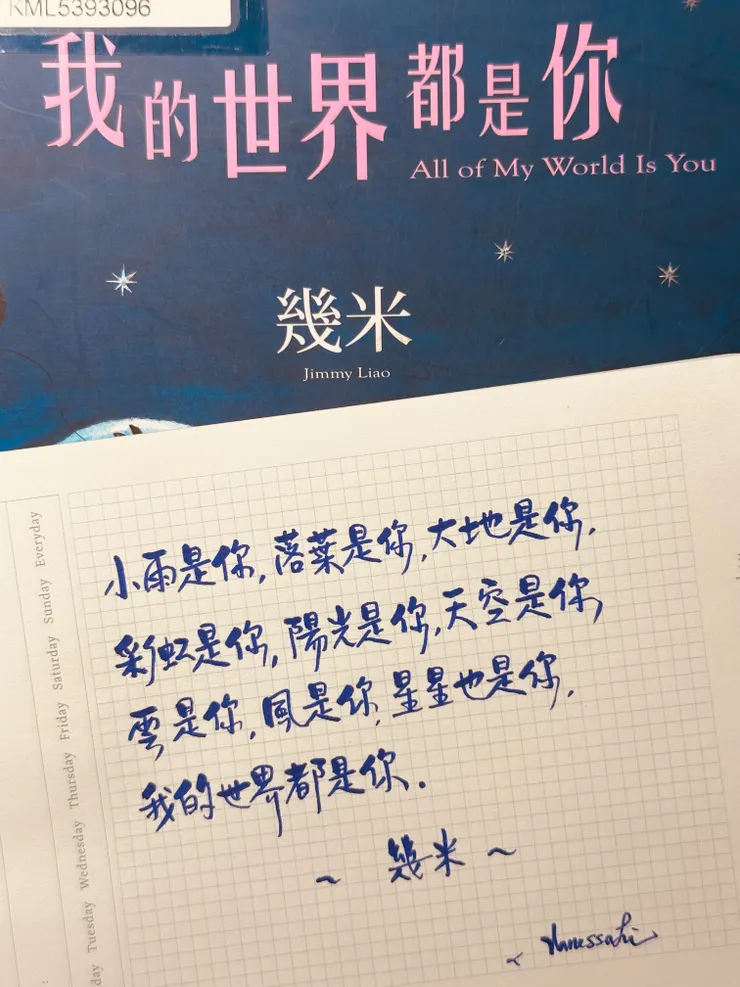 KML5393096
我的世界都是你
All of My World Is You
幾米
Jimmy Liao
小雨是你,落葉是你,大地是你,
彩虹是你,陽光是你,天空是你,
雲是你,風是你,星星也是你,
我的世界都是你.
~ 幾米 ~
day Tuesday Wednesday Thursday Friday Saturday Sunday Everyday